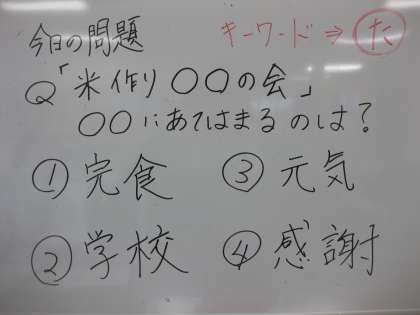 今日の問題 キーワード⇒た
Q「米作り〇〇の会」
〇〇にあてはまるのは?
①完食 ③元気
②学校 ④感謝